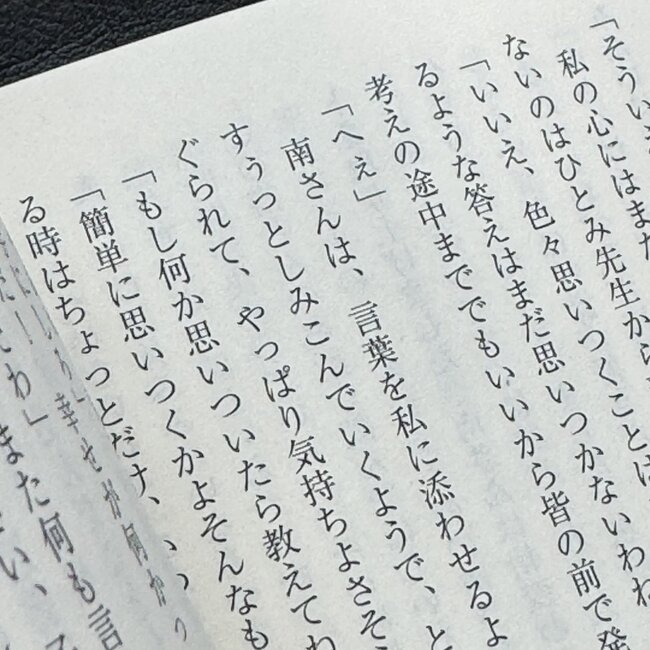 「そういう
私の心にはまた
ないのはひとみ先生から
「いいえ、色々思いつくことは
るような答えはまだ思いつかないわね
考えの途中まででもいいから皆の前で発
「へぇ」
南さんは、言葉を私に添わせるよ
すぅっとしみこんでいくようで、と
ぐられて、やっぱり気持ちよさそ
「もし何か思いついたら教えてわ
「簡単に思いつくかよそんなも
る時はちょっとだけ、
幸せが何か
わ」また何も言